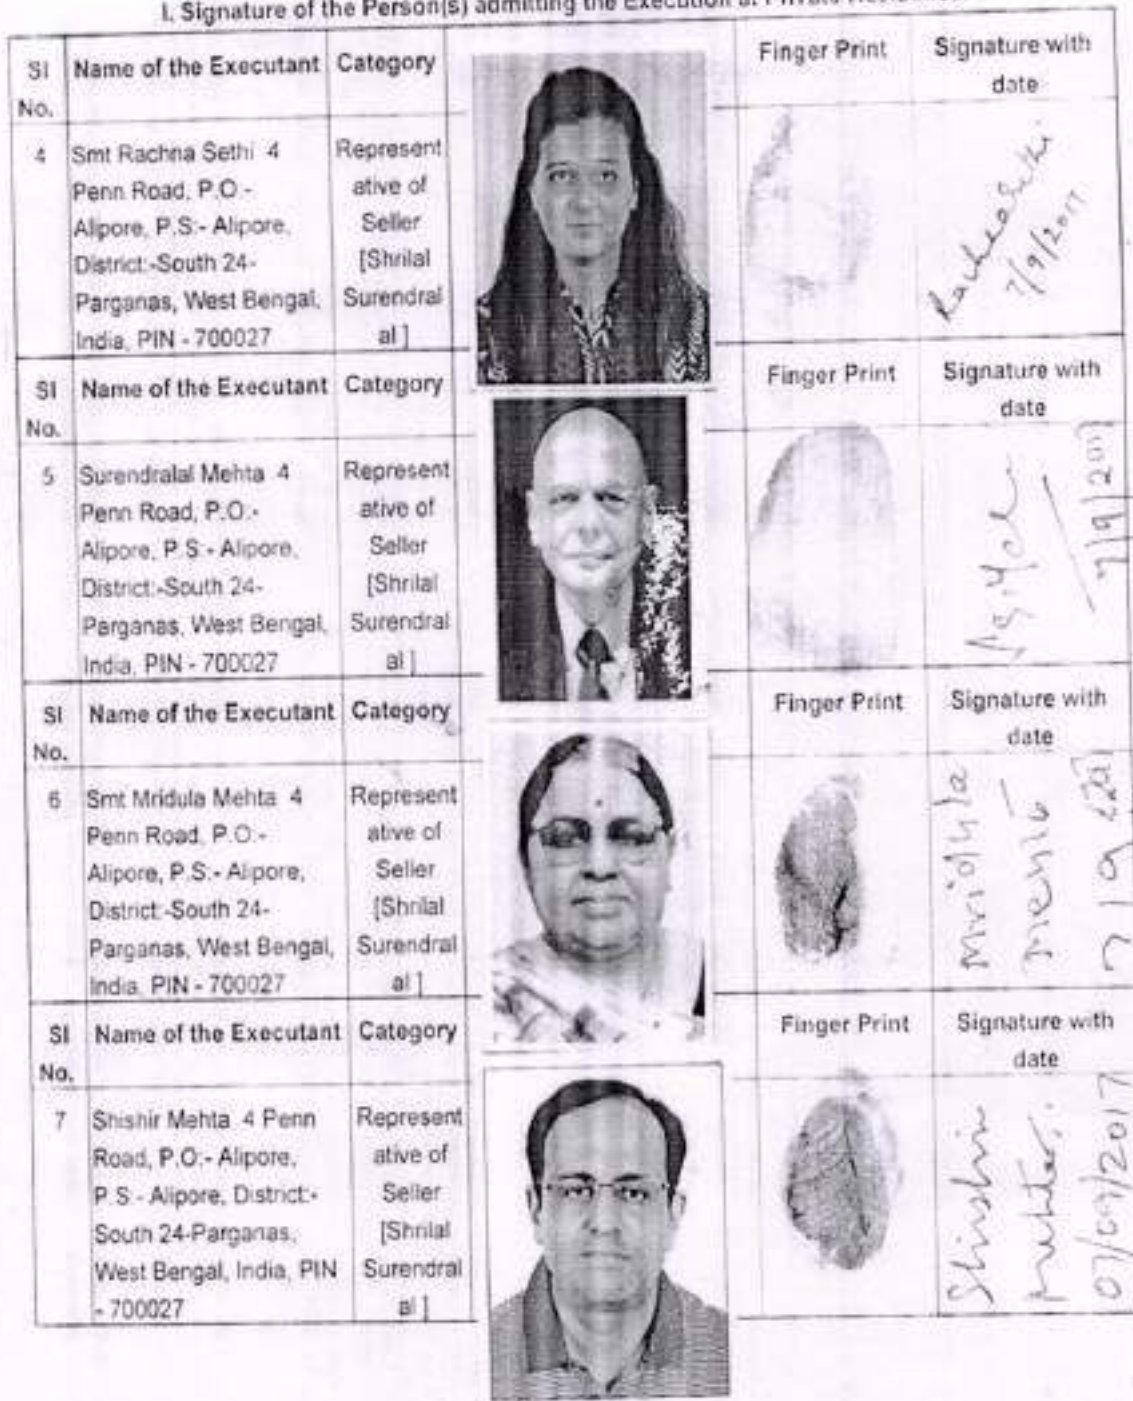 I. Signature of the Person(s) admitting the Execution at Private
SI No.
Name of the Executant
Category
Finger Print
Signature with date
4
Smt Rachna Sethi 4
Penn Road, P.O.-
Alipore, P.S:- Alipore,
District:-South 24-
Parganas, West Bengal,
India, PIN - 700027
Represent
ative of
Seller
[Shrilal
Surendral
al ]
7/9/2017
SI No.
Name of the Executant
Category
Finger Print
Signature with date
5
Surendralal Mehta 4
Penn Road, P.O.-
Alipore, P.S:- Alipore,
District:-South 24-
Parganas, West Bengal,
India, PIN - 700027
Represent
ative of
Seller
[Shrilal
Surendral
al ]
7/9/2017
SI No.
Name of the Executant
Category
Finger Print
Signature with date
6
Smt Mridula Mehta 4
Penn Road, P.O.-
Alipore, P.S:- Alipore,
District:-South 24-
Parganas, West Bengal,
India, PIN - 700027
Represent
ative of
Seller
[Shrilal
Surendral
al ]
SI No.
Name of the Executant
Category
Finger Print
Signature with date
7
Shishir Mehta 4 Penn
Road, P.O:- Alipore,
P.S:- Alipore, District:-
South 24-Parganas,
West Bengal, India, PIN
- 700027
Represent
ative of
Seller
[Shrilal
Surendral
al ]
07/09/2017